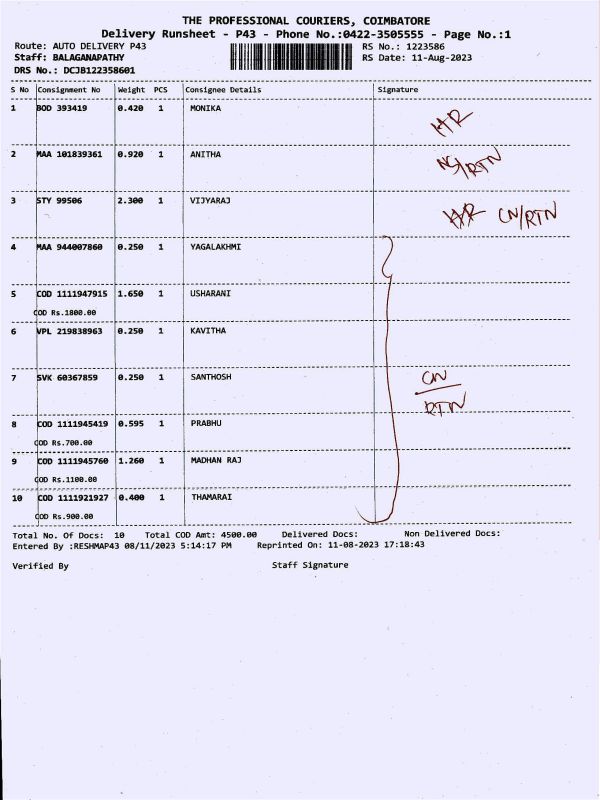 THE PROFESSIONAL COURIERS, COIMBATORE
Delivery Runsheet - P43 - Phone No.:0422-3505555 - Page No.:1
Route: AUTO DELIVERY P43 RS No.: 1223586
Staff: BALAGANAPATHY RS Date: 11-Aug-2023
DRS No.: DCJB122358601
S No Consignment No Weight PCS Consignee Details Signature
1 BOD 393419 0.420 1 MONIKA
2 MAA 101839361 0.920 1 ANITHA NS/RTN
3 STY 99506 2.300 1 VIJYARAJ CN/RTN
4 MAA 944007860 0.250 1 YAGALAKHMI
5 COD 1111947915 1.650 1 USHARANI
COD Rs.1800.00
6 VPL 219838963 0.250 1 KAVITHA
7 SVK 60367859 0.250 1 SANTHOSH CN
RTN
8 COD 1111945419 0.595 1 PRABHU
COD Rs.700.00
9 COD 1111945760 1.260 1 MADHAN RAJ
COD Rs.1100.00
10 COD 1111921927 0.400 1 THAMARAI
COD Rs.900.00
Total No. Of Docs: 10 Total COD Amt: 4500.00 Delivered Docs: Non Delivered Docs:
Entered By :RESHMAP43 08/11/2023 5:14:17 PM Reprinted On: 11-08-2023 17:18:43
Verified By Staff Signature